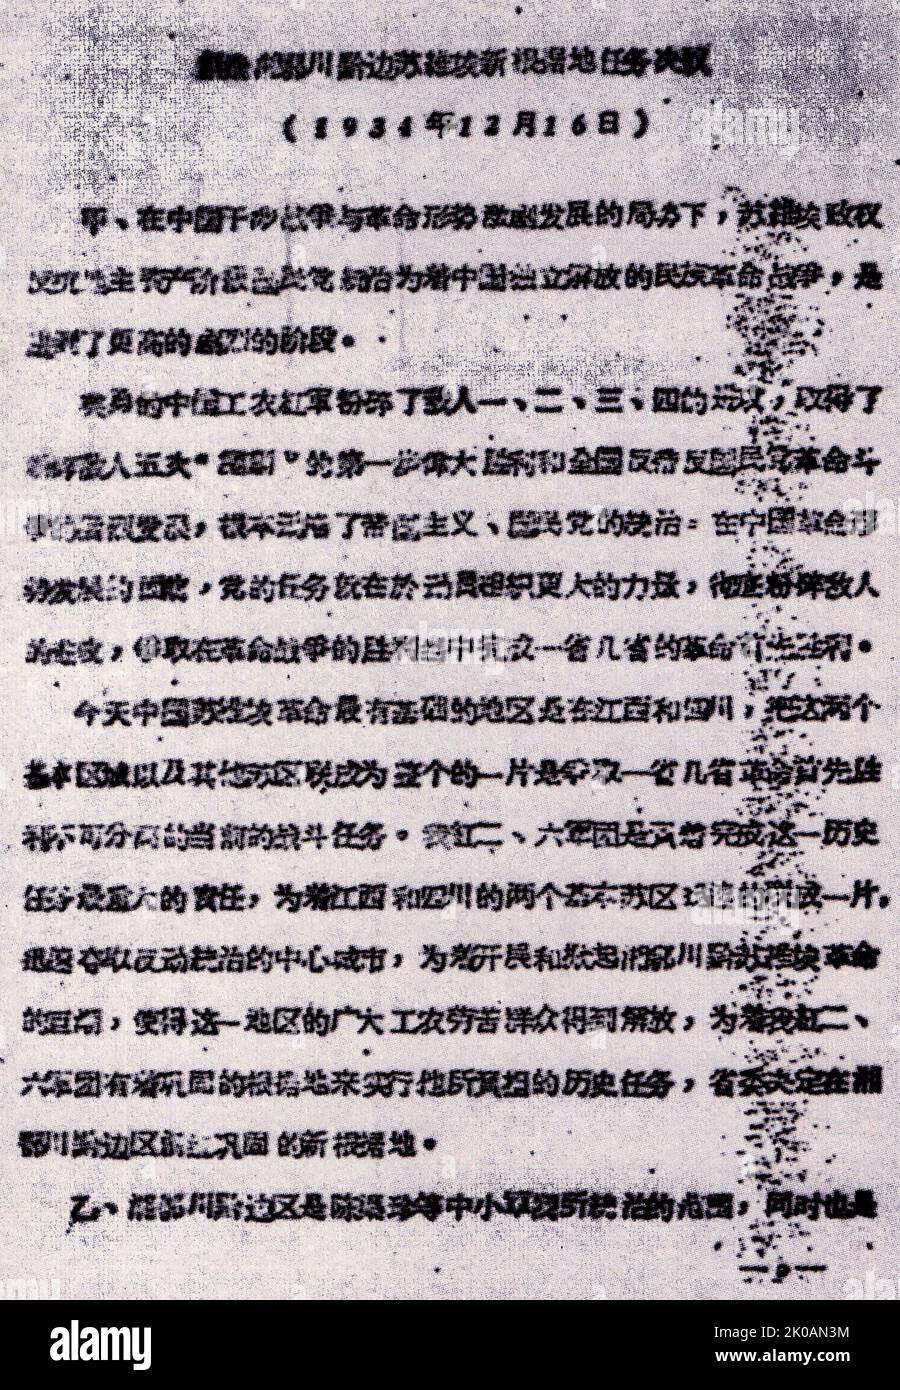 湘鄂川黔边苏维埃新根据地任务决议
(1934年12月16日)
甲、在中国干涉战争与革命形势激剧发展的局势下,苏维埃政权
主资产阶级国民党统治为着中国独立解放的民族革命战争,是
进到了更高的剧烈的阶段。
英勇的中国工农红军粉碎了敌人一、二、三、四的进攻,取得了
粉碎敌人五次“围剿”的第一步伟大胜利和全国反帝反国民党革命斗
争的激烈发展,根本动摇了帝国主义、国民党的统治。在中国革命形
势发展的面前,党的任务就在於动员组织更大的力量,彻底粉碎敌人
的进攻,争取在革命战争的胜利当中完成一省几省的革命首先胜利。
今天中国苏维埃革命最有基础的地区是在江西和四川,把这两个
基本区域以及其他苏区联成为整个的一片是争取一省几省革命首先胜
利不可分离的当前的战斗任务。我红二、六军团是负着完成这一历史
任务最重大的责任,为着江西和四川的两个基本苏区迅速的联成一片,
迅速夺取反动统治的中心城市,为着开展和掀起湘鄂川黔苏维埃革命
的巨潮,使得这一地区的广大工农劳苦群众得到解放,为着我红二、
六军团有着巩固的根据地来实行他所负担的历史任务,省委决定在湘
鄂川黔边区创造巩固的新根据地。
乙、湘鄂川黔边区是陈渠珍等中小军阀所统治的范围,同时也是
alamy
Image ID: 2K0AN3M
www.alamy.com